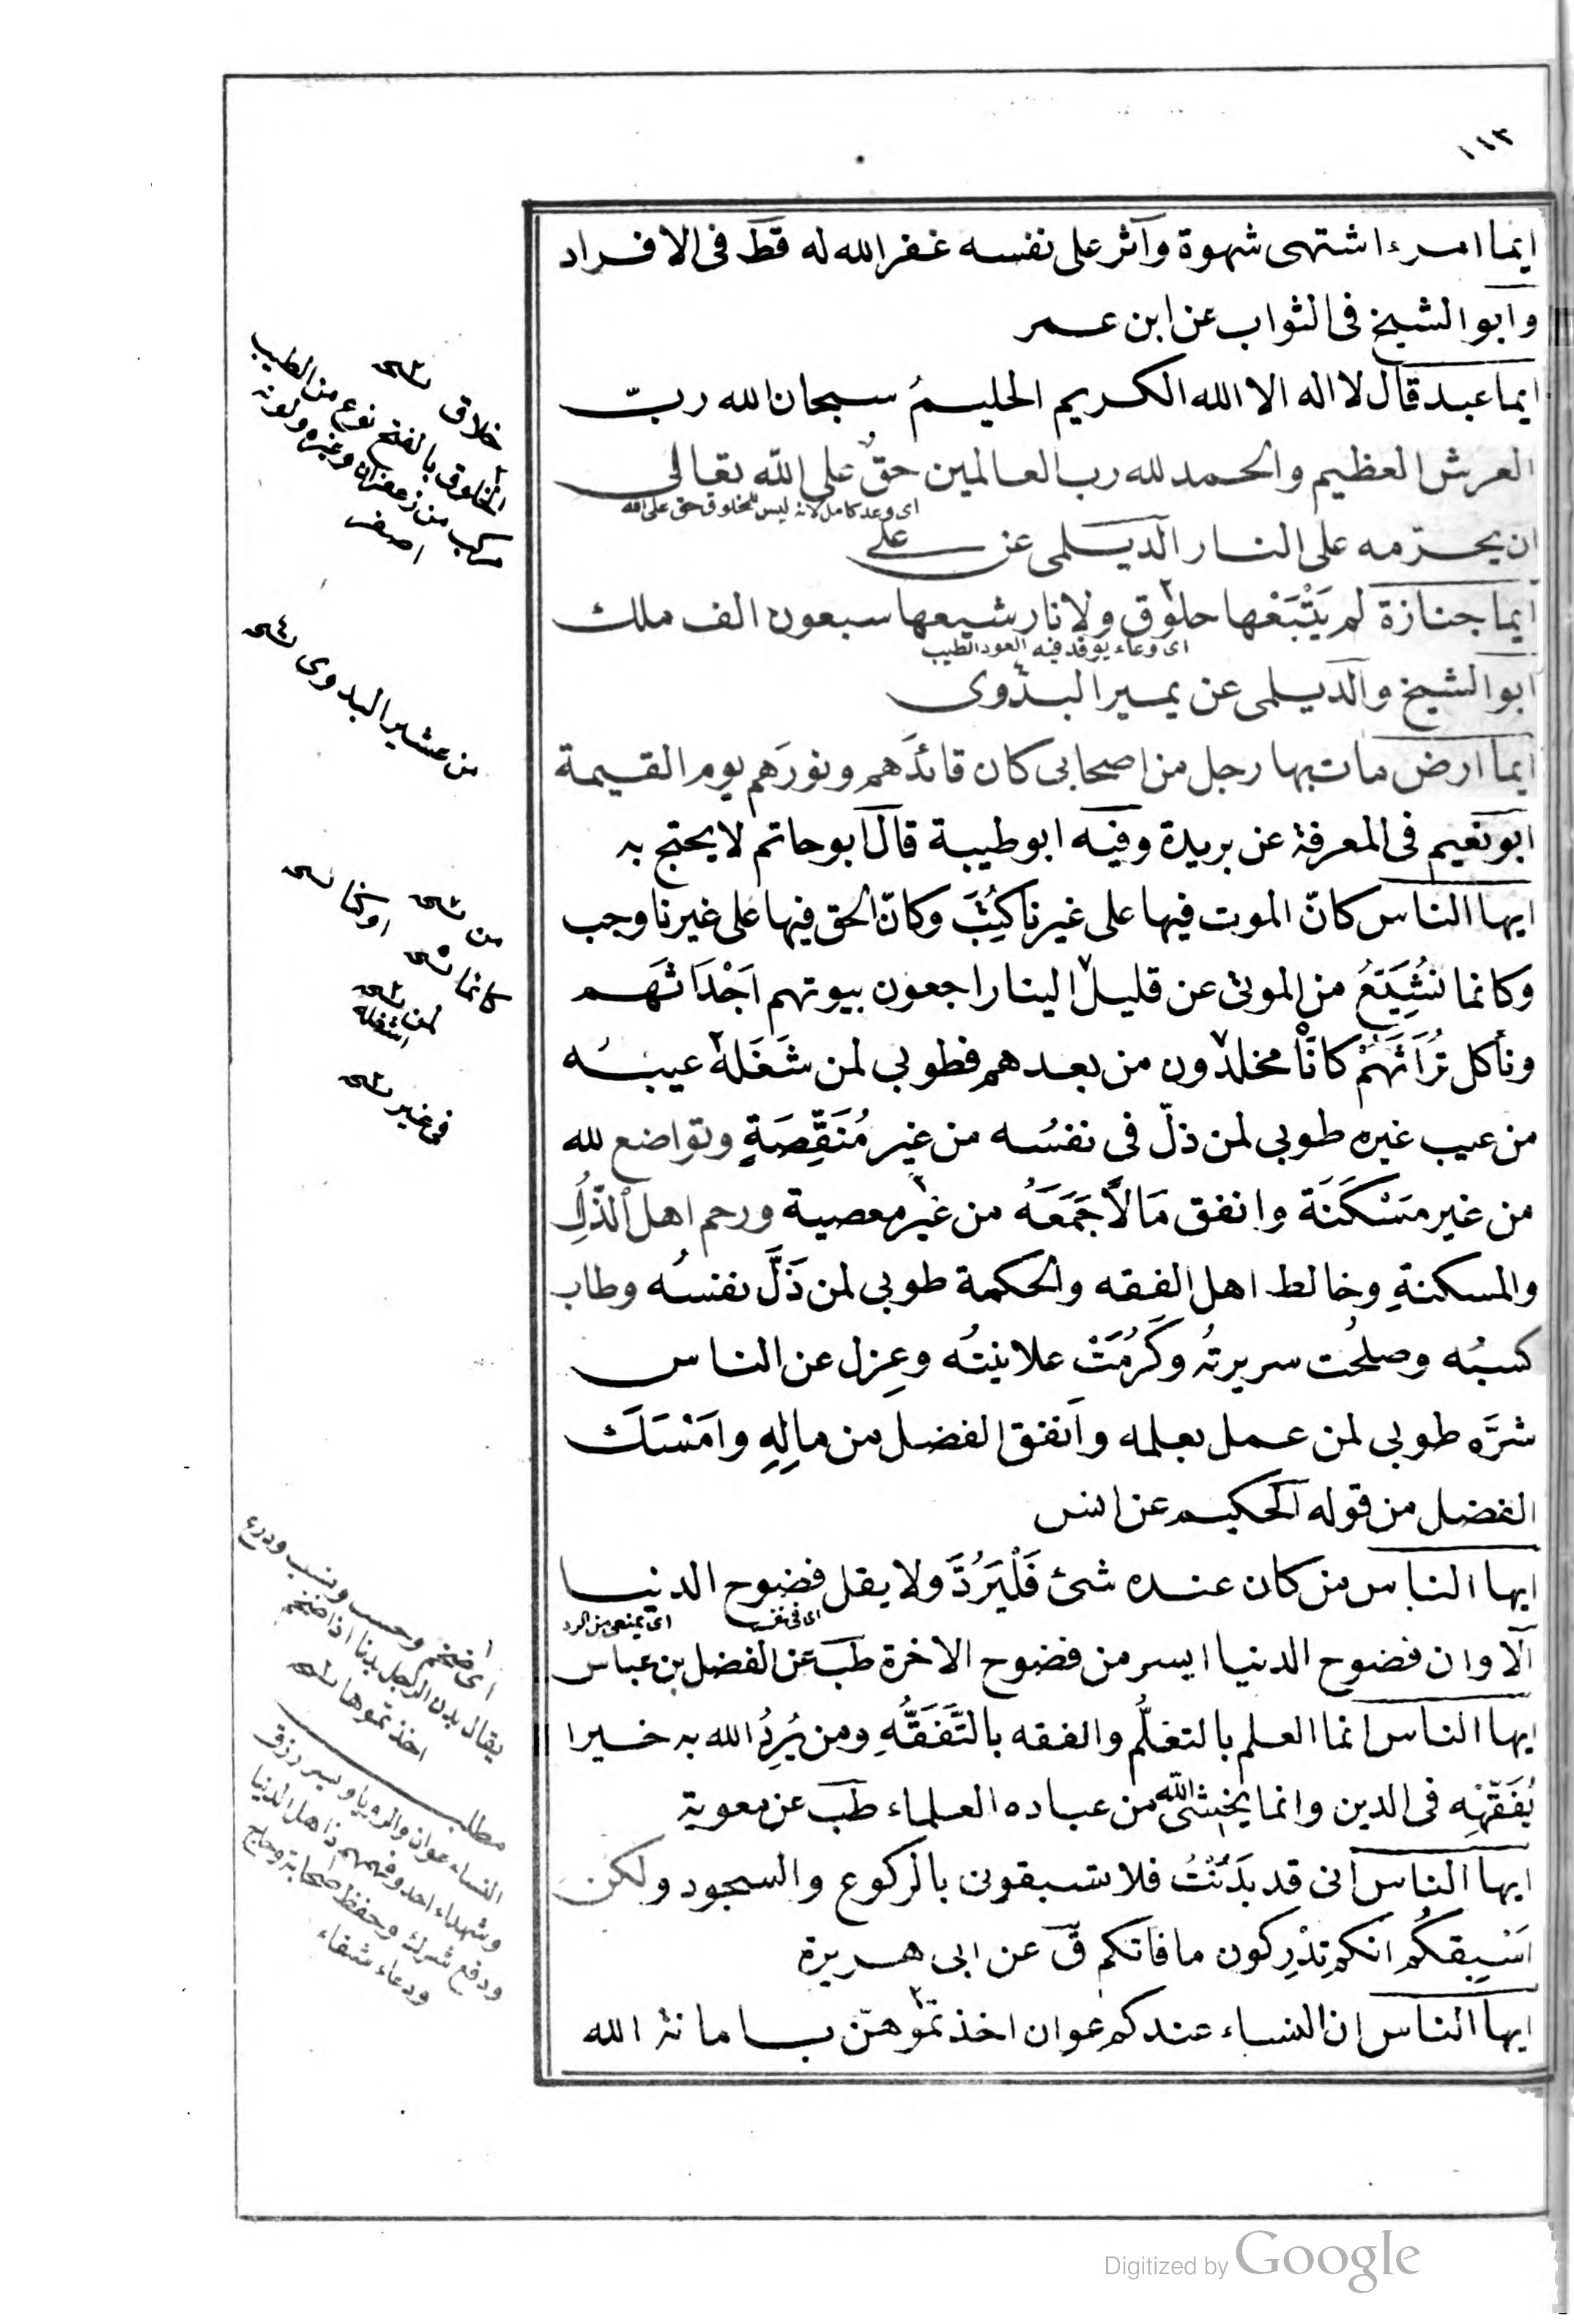 ١١٣
ايما امرء اشتهى شهوة وآثر على نفسه غفر الله له قط فى الافراد
وابو الشيخ فى الثواب عن ابن عمر
ايما عبد قال لا اله الا الله الكريم الحليمُ سبحان الله ربّ
العرش العظيم والحمد لله رب العالمين حقٌ على الله تعالى
اى وعد كامل لانه ليس للمخلوق حق على الله
ان يحرّمه على النار الديلمى عن على
ايما جنازة لم يَتْبَعْها حلوق ولا نار شيعها سبعون الف ملك
اى وعاء يوقد فيه العود الطيب
ابو الشيخ والديلمى عن يسير البدوى
ايما ارض مات بها رجل من اصحابى كان قائدَهم ونورَهم يوم القيمة
ابو نعيم فى المعرفة عن بريدة وفيه ابو طيبة قال ابو حاتم لا يحتج به
ايها الناس كانّ الموت فيها على غيرنا كُتِبَ وكانّ الحق فيها على غيرنا وجب
وكانما نُشَيِّعُ من الموتى عن قليل الينا راجعون بيوتهم اَجْدَاثَهم
ونأكل تُرَاثَهُمْ كانّا مخلدون من بعدهم فطوبى لمن شَغَلَهُ عيبُه
من عيب غيره طوبى لمن ذلّ فى نفسُه من غير مُنَقِّصَةٍ وتواضع لله
من غير مَسْكَنَة وانفق مَالًا جَمَعَهُ من غير معصية ورحم اهل الذُّلِ
والمسكنةِ وخالط اهل الفقه والحكمة طوبى لمن ذَلَّ نفسُه وطاب
كسبُه وصلحُت سريرتُه وكَرُمَتْ علانيتُه وعزل عن الناس
شرَّه طوبى لمن عمل بعلمه وانفق الفضل من مالِهِ وامْسَكَ
الفضل من قوله الحكيم عن انس
ايها الناس من كان عنده شئ فَلْيَرُدَّ ولا يقل فضوح الدنيا
اى فى نفسه اى يمنعى من الرد
اَلا وان فضوح الدنيا ايسر من فضوح الاخرة طب عن الفضل بن عباس
ايها الناس انما العلم بالتعلُّم والفقه بالتَّفَقُّهِ ومن يُرِدُ الله به خيرا
يُفَقِّهْهِ فى الدين وانما يخشى الله من عباده العلماء طب عن معوية
ايها الناس انى قد بَدَنْتُ فلا تسبقونى بالركوع والسجود ولكن
اسْبِقكُم انكم تدْرِكون ما فاتكم ق عن ابى هريرة
ايها الناس ان النساء عندكم عوان اخذتموهنّ بامانة الله
خلاق
الخلوق بالفتح نوع من الطيب
مركب من زعفران وغيره ولونه
اصفر
من عشير البدوى
من
كانما
لمن
اشغله
فى غير
اى ضخم وحسب ونسب ودرع
يقال بدن الرجل بدنا اذا ضخم
اخذتموها
مطلب
النساء عوان والرؤيا ويسر رزق
وشهداء احد وفهمهم ذا هل الدنيا
ودفع شرك وحفظ صحابة وحاج
ودعاء شفاء
Digitized by Google